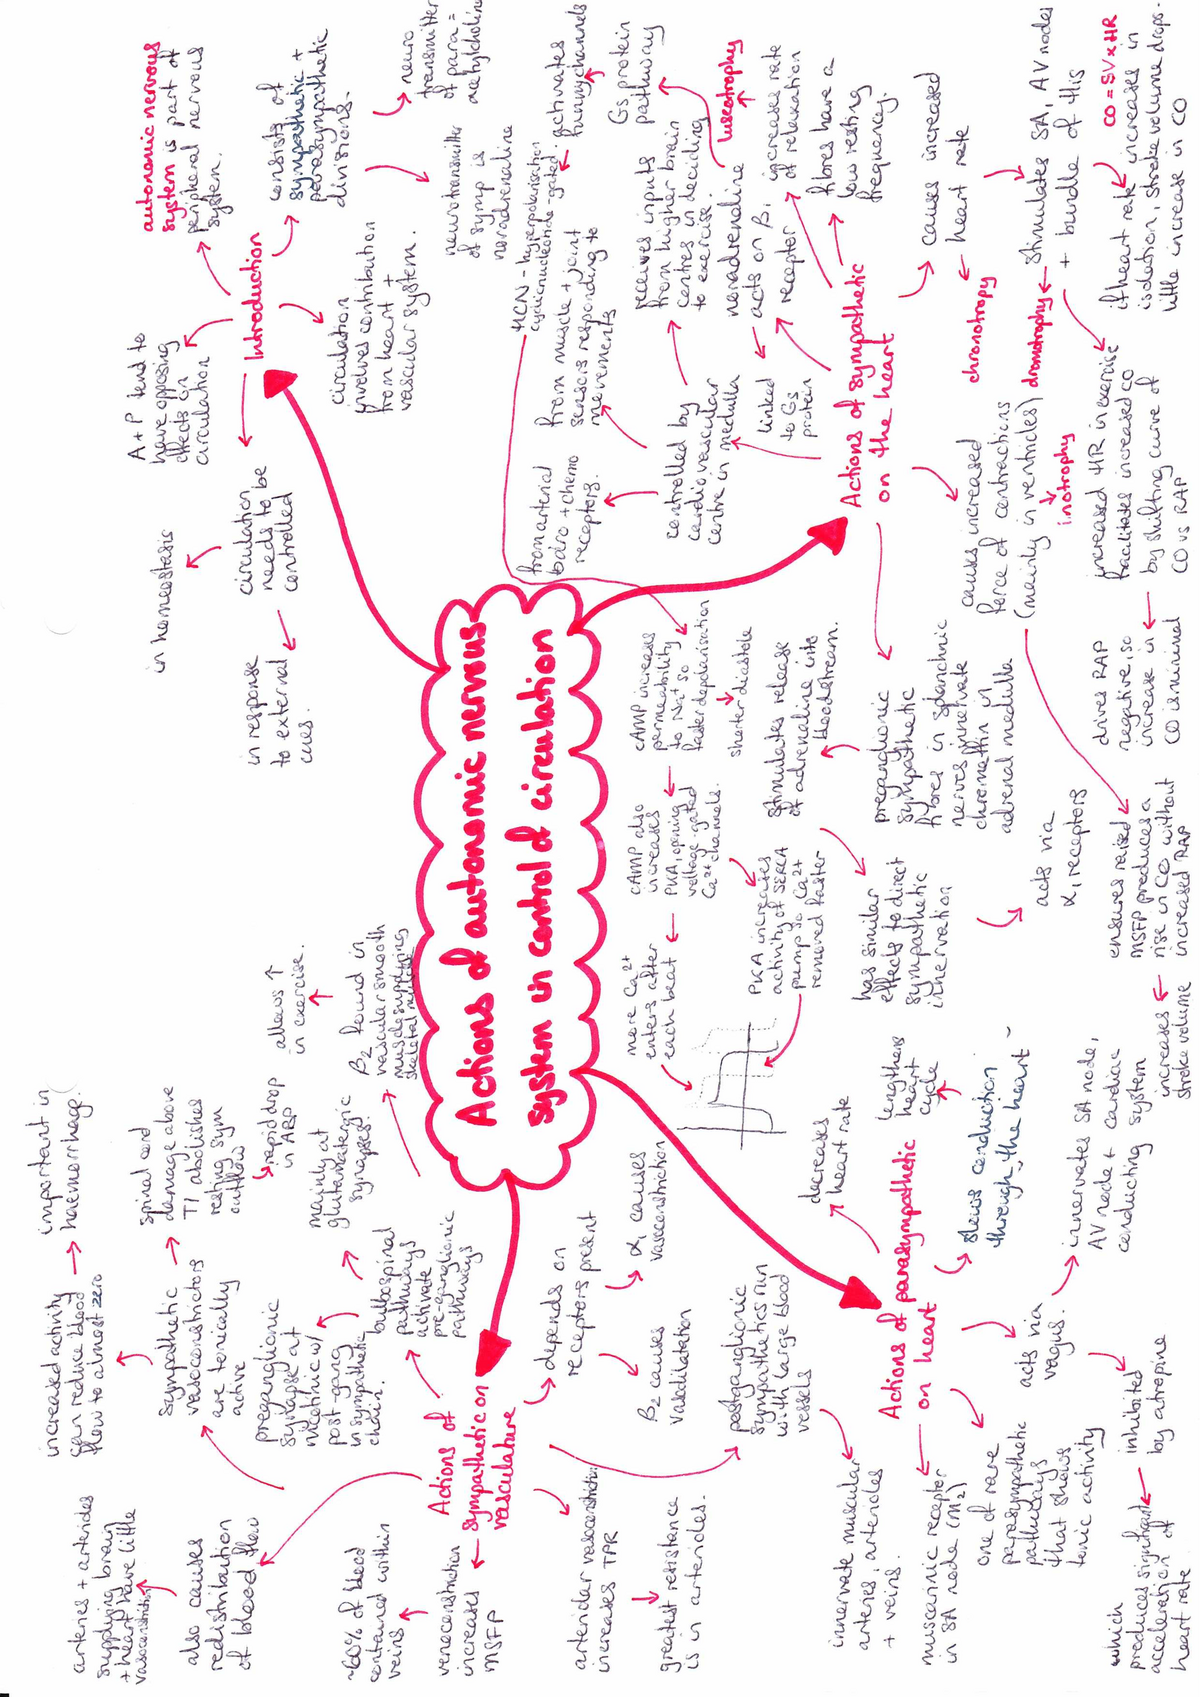 Actions of autonomic nervous
system in control of circulation
Introduction
autonomic nervous
system is part of
peripheral nervous
system.
consists of
sympathetic +
parasympathetic
divisions.
neuro
transmitter
of para =
acetylcholine
neurotransmitter
of symp is
noradrenaline
circulation
involves contribution
from heart +
vascular system.
A + P tend to
have opposing
effects on
circulation
circulation
needs to be
controlled
in homeostasis
in response
to external
cues.
Actions of sympathetic
on the heart
controlled by
cardiovascular
centre in medulla
from arterial
baro + chemo
receptors.
from muscle + joint
sensors responding to
movements
receives inputs
from higher brain
centres in deciding
to exercise.
noradrenaline
acts on β1
receptor
linked
to Gs
protein
Gs protein
pathway
activates
funny channels
HCN - hyperpolarisation
cyclic nucleotide-gated.
lusotrophy
increases rate
of relaxation
fibres have a
low resting
frequency.
causes increased
heart rate
chronotropy
stimulates SA, AV nodes
+ bundle of His
dromotrophy
CO = SV x HR
if heart rate increases in
isolation, stroke volume drops.
little increase in CO
increased HR in exercise
facilitates increased CO
by shifting curve of
CO vs RAP
drives RAP
negative, so
increase in
CO is minimal
causes increased
force of contractions
(mainly in ventricles)
inotrophy
ensures raised
MSFP produces a
rise in CO without
increased RAP
increases
stroke volume
preganglionic
sympathetic
fibres in splanchnic
nerves innervate
chromaffin in
adrenal medulla
stimulates release
of adrenaline into
bloodstream.
has similar
effects to direct
sympathetic
innervation
acts via
α1 receptors
cAMP increases
permeability
to Na+ so
faster depolarisation
shorter diastole
cAMP also
increases
PKA, opening
voltage-gated
Ca2+ channels.
more Ca2+
enters after
each beat
PKA increases
activity of SERCA
pump so Ca2+
removed faster
Actions of parasympathetic
on heart
decreases
heart rate
lengthens
heart
cycle
slows conduction
through the heart
innervates SA node,
AV node + cardiac
conducting system
acts via
vagus.
inhibited
by atropine
which
produces significant
acceleration of
heart rate
one of rare
parasympathetic
pathways
that shows
tonic activity
muscarinic receptor
in SA node (M2)
Actions of
sympathetic on
vasculature
depends on
receptors present
α1 causes
vasoconstriction
β2 causes
vasodilatation
postganglionic
sympathetics run
with large blood
vessels
innervate muscular
arteries, arterioles
+ veins.
arteriolar vasoconstriction
increases TPR
greatest resistance
is in arterioles.
venoconstriction
increases
MSFP
~60% of blood
contained within
veins
also causes
redistribution
of blood flow
arteries + arterioles
supplying brain
+ heart have little
vasoconstriction
sympathetic
vasoconstrictors
are tonically
active
increased activity
can reduce blood
flow to almost zero
important in
haemorrhage.
spinal cord
damage above
T1 abolishes
resting sym
outflow
rapid drop
in ABP
preganglionic
synapse at
nicotinic w/
post-gang
in sympathetic
chain.
bulbospinal
pathways
activate
pre-ganglionic
pathways
mainly at
glutamatergic
synapses.
β2 found in
vascular smooth
muscle supplying
skeletal muscle
allows ↑
in exercise.